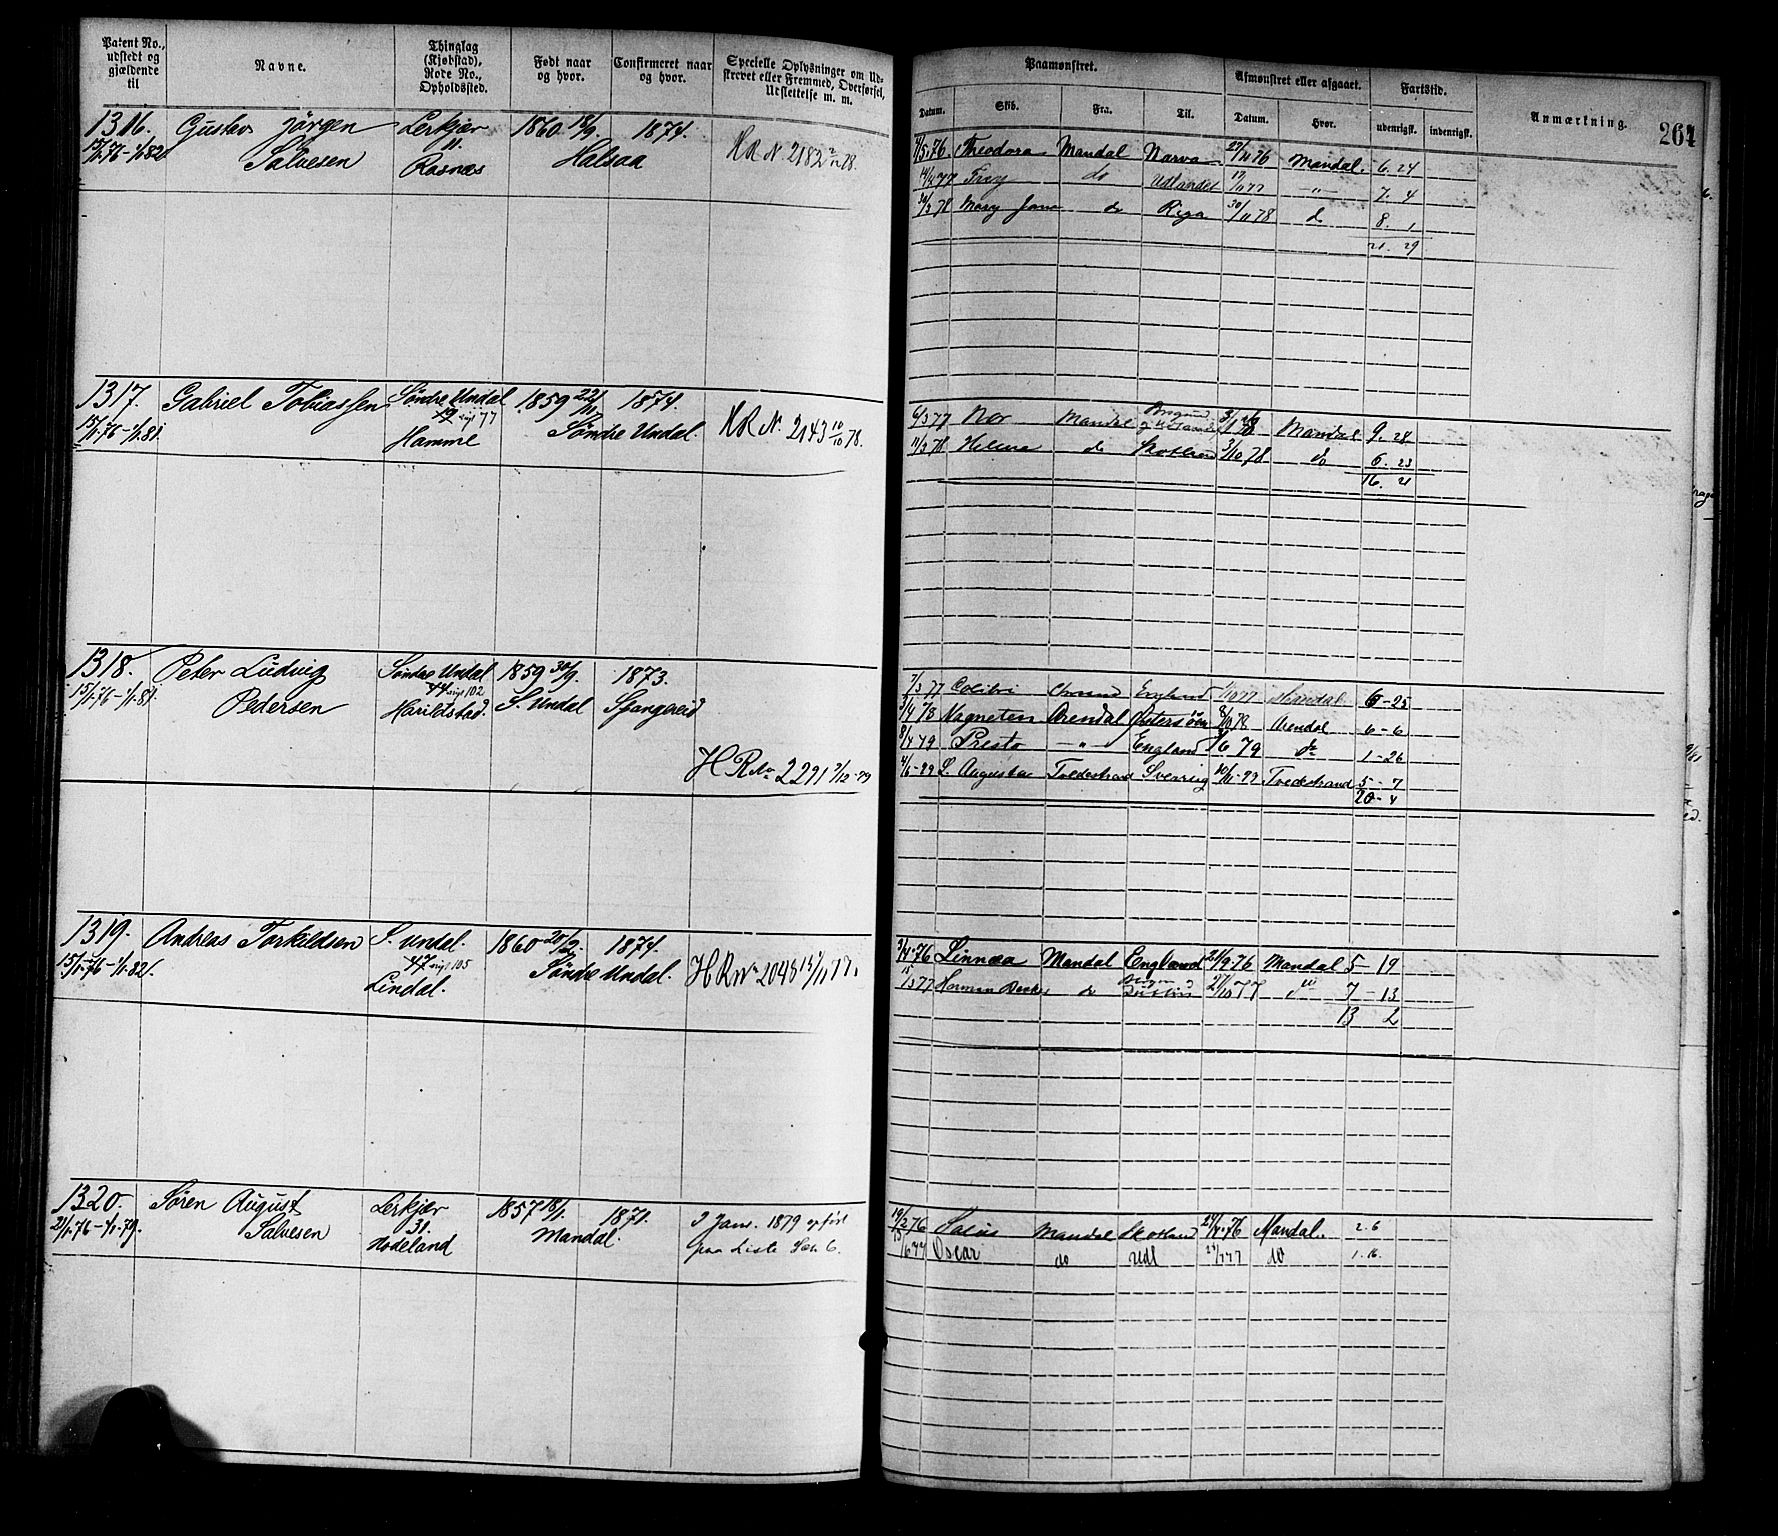 Patent No., udstedt og gjældende til
Navne.
Thinglag (Kjøbstad), Rode No., Opholdssted.
Født naar og hvor.
Confirmeret naar og hvor.
Specielle Oplysninger om Udskrevet eller Fremmed, Overførsel, Udslettelse m. m.
Paamønstret.
Datum. Skib. Fra. Til.
Afmønstret eller afgaaet.
Datum. Hvor.
Fartstid.
udenrigsk. indenrigsk.
Anmærkning.
264
1316. Gustav Jörgen Lerkjær 1860 18/9. 1874.
15/1.76 - 1/1.82 Salvesen 11. Halsaa HR N. 2182
Rosnæs
/5.76. Theodora Mandal Narva 27/11 76 Mandal. 6. 24
14/4 77 Frey do Udlandet 17/11 77 -"- 7. 4
30/3 78 Mary Jane do Riga 30/11 78 d 8. 1
21. 29
1317. Gabriel Tobiassen Söndre Undal 1859 22/11 1874.
15/1.76 - 1/1.81. 19 77 Söndre Undal. HR N. 2143 10/10 78.
Hamme
6/3 77 Nor Mandal Mandal 9. 28
11/3 78 Helene do Skotland 3/10 78 do 6. 23
16. 21
1318. Peter Ludvig Söndre Undal 1859 30/9. 1873.
15/1.76 - 1/1.81. Pedersen 44 102 S. Undal Spangereid
Harildstad.
HR No 2291 2/12 - 79
7/3 77 Colibri England Mandal 6 - 25
3/4 78 Magneten Arendal 78 Arendal 6 - 6
8/4 79 Presto -"- England 6 79 do 1 - 26
4/6 - 79 L. Augusta Tvedestrand Sverrig 10/11 - 79 Tvedestrand 5 - 7
20 - 4
1319. Andreas Torkildsen S. Undal. 1860 20/2. 1874.
15/1.76 - 1/1.82. 47 105 Söndre Undal. HR No 2045 15/11 77.
Lindal.
3/4.76 Linnæa Mandal England 21/9.76 Mandal 5 - 19
15/3 77 Herman do 27/10 77 do 7 - 13
13 2
1320. Sören August Lerkjær 1857 18/1. 1871.
21/1.76 - 1/1.79. Salvesen 31. Mandal. 3 Janr. 1879 opført
Nodeland paa Liste Sec 6.
19/2 76 Mandal Skotland 24/4.76 Mandal. 2. 6
15/6 77 Oscar do Udl 27/7 77 do 1. 16.